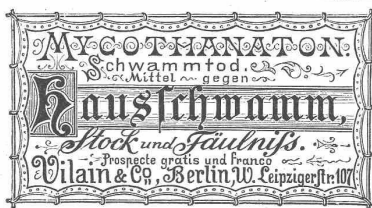 MYCOTHANATON.
Schwammtod.
Mittel gegen
Hausſchwamm,
Stock und Fäulniſs.
Prospecte gratis und franco
Vilain & Co, Berlin, W. Leipzigerſtr. 107